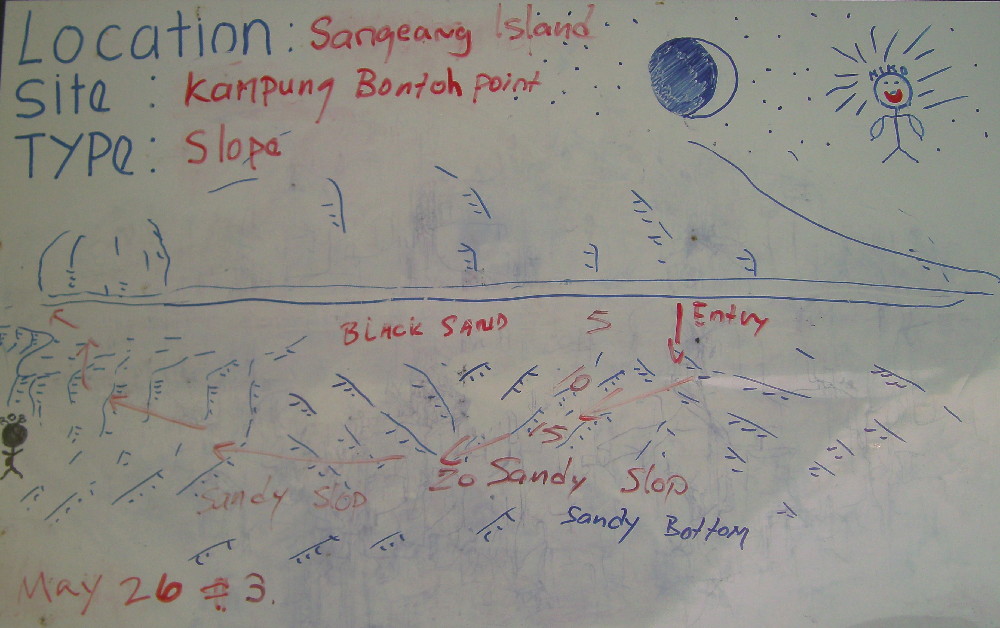 Location: Sangeang Island
Site: Kampung Bontoh point
TYPe: Slope
MIKO
BLACK SAND
5
Entry
10
15
BOB
20 Sandy Slop
Sandy Slop
Sandy Bottom
May 26 # 3.